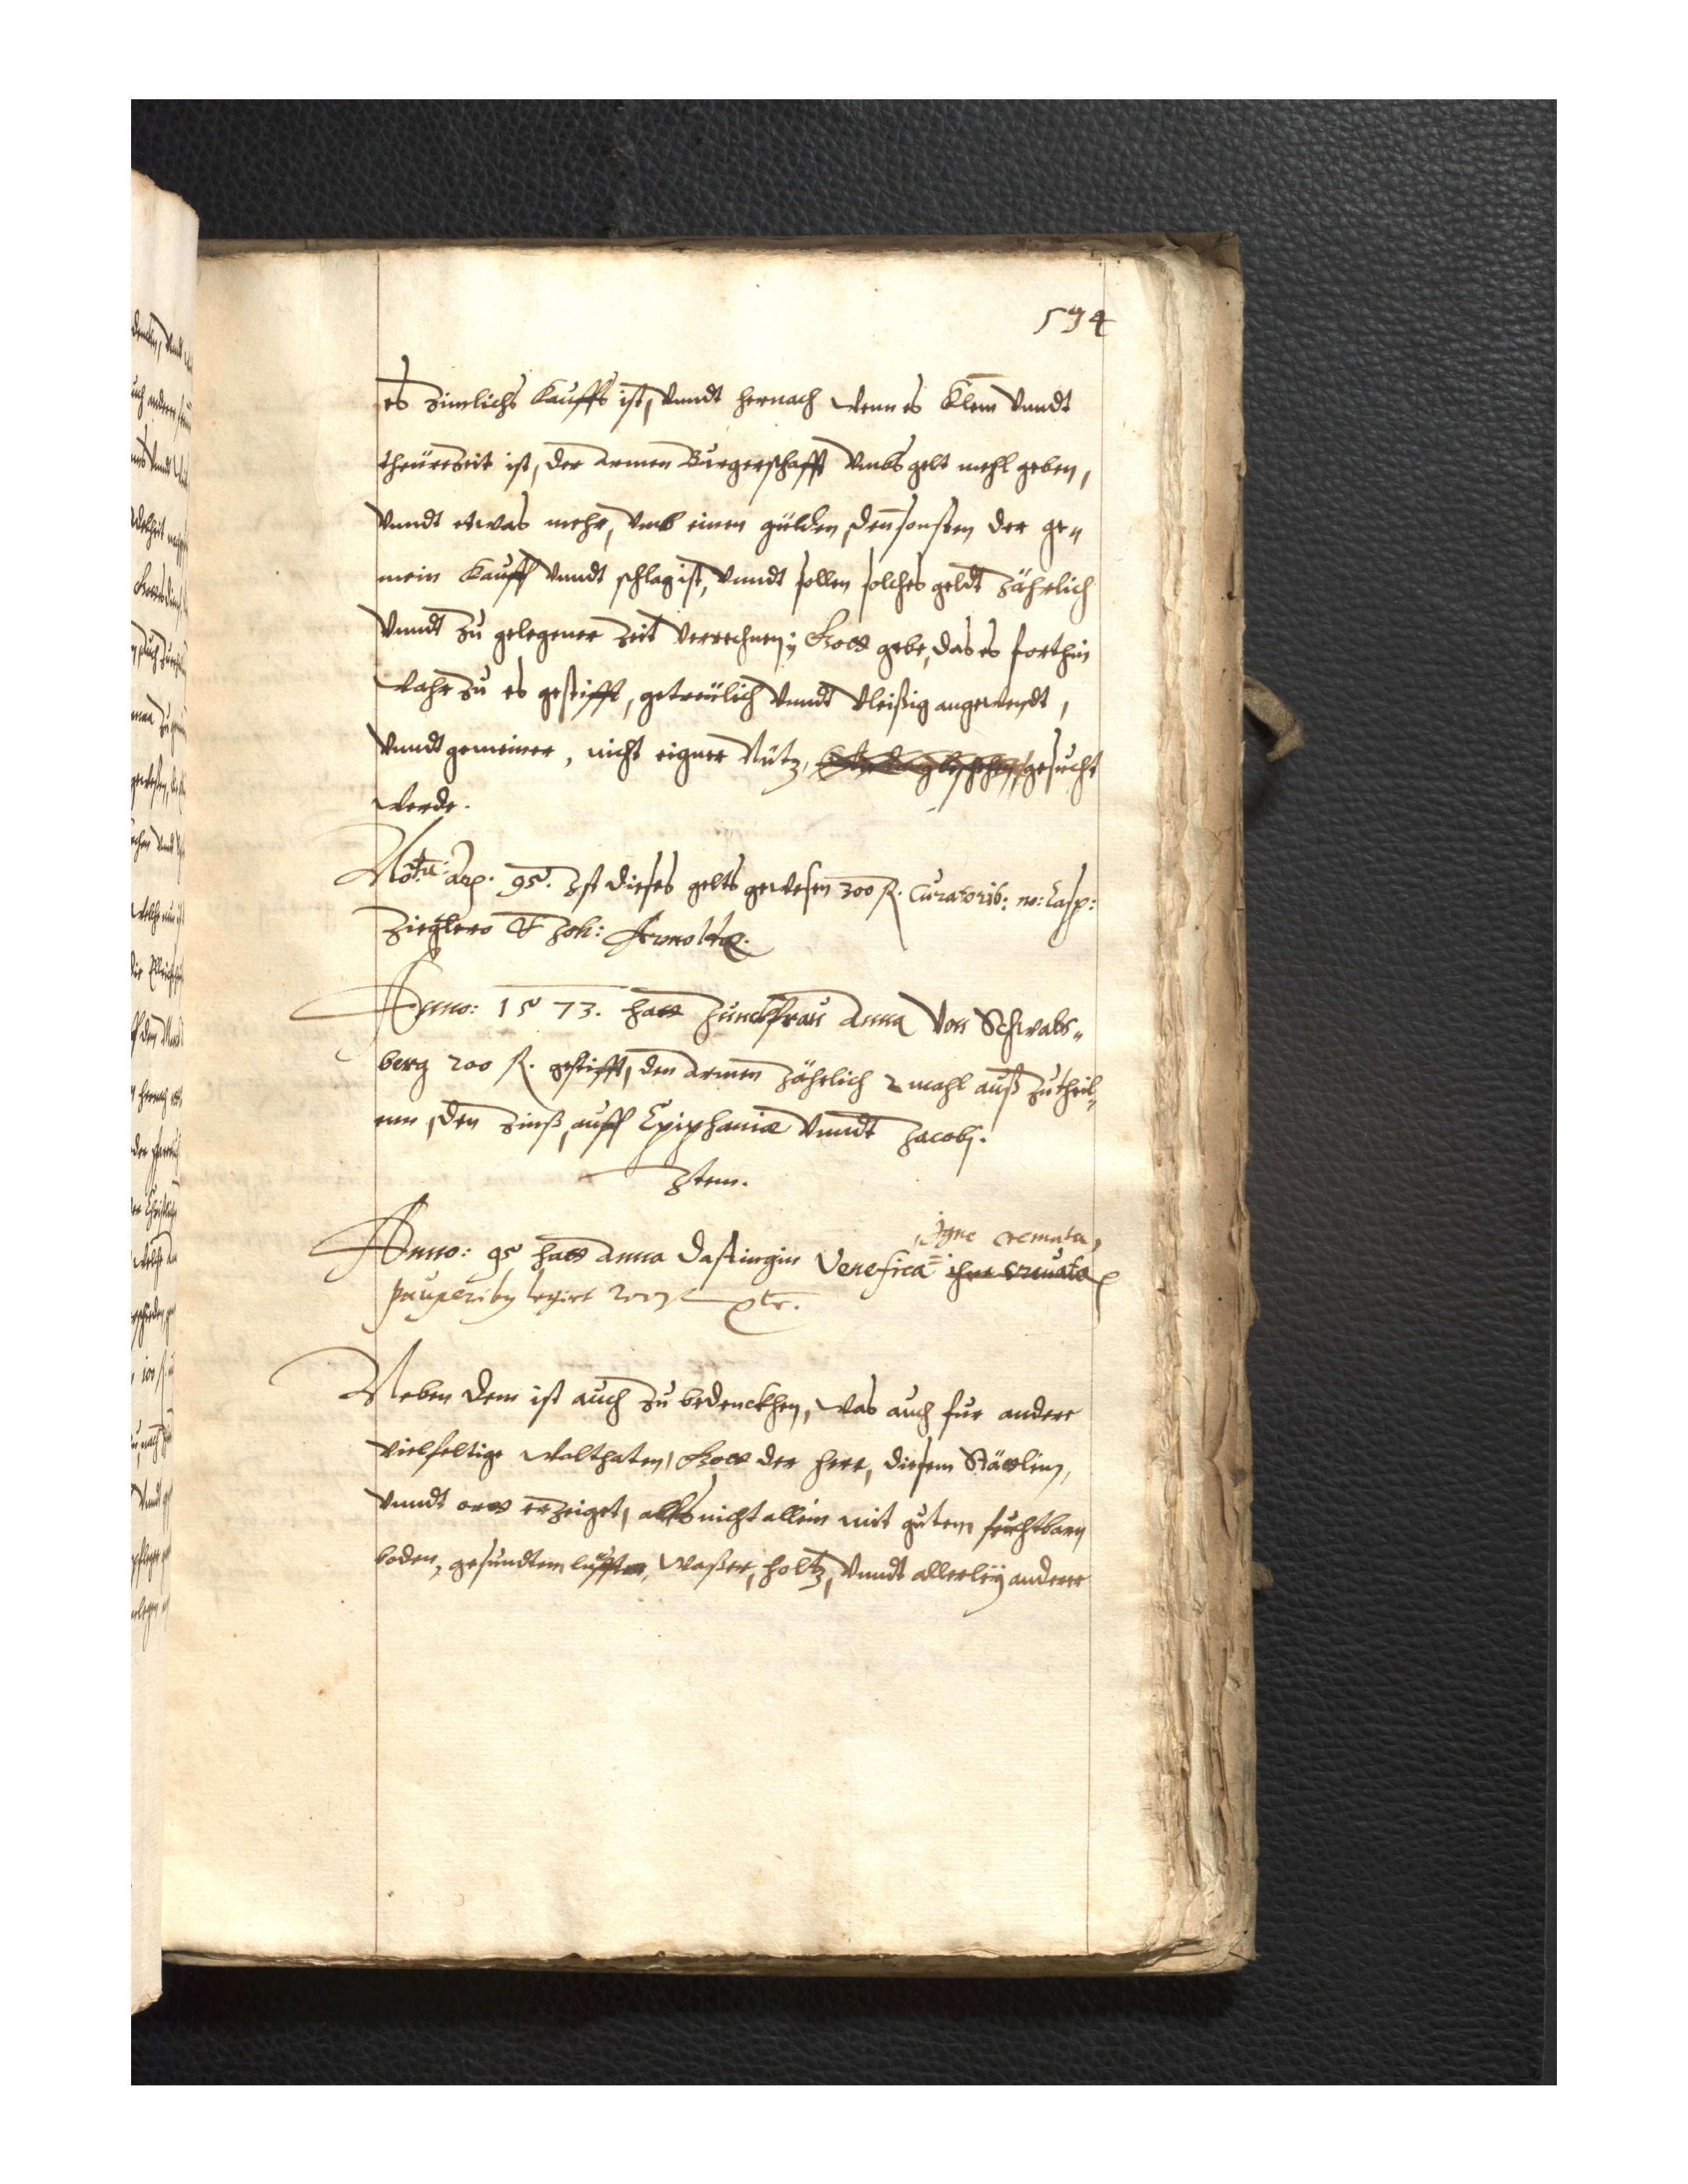 594
es zimlichs kauffs ist, vnndt hernach wenn es klem vnndt
theürezeit ist, der armen Burgerschafft vmbs gelt mehl geben,
vnndt etwas mehr, vmb einen gülden, den̄ sonsten der ge„
mein kauff vnndt schlag ist, vnndt sollen solches geldt Jährlich
vnndt zu gelegener Zeit verrechnen; Gott gebe, das es forthin
wahr zu es gestifft, getreülich vnndt vleißig angewendt,
vnndt gemeiner, nicht eigner Nütz, gesucht
werde.
Nota: Ao. 95. Ist dieses gelts gewesen 300 fl. Curatorib: m: Casp:
Zieglero & Joh: Arnoldo.
Anno: 1573. hatt Junckfrau Anna von Schwabs„
berg 200 fl. gestifft, den armen Jährlich 2 mahl auß zutheil„
enn, den Zinß, auff Epiphaniæ vnndt Jacobj.
Item.
Igne cremata,
Anno: 95 hatt Anna Venefica igne cremata
pauperiby legirt 200 fl etc.
Neben dem ist auch zu bedenckhen, was auch fur andere
vielfeltige wolthaten, Gott der herr, diesem Stättlin,
vnndt ortt erzeiget, alls nicht allein mit gutem fruchtbarn
boden, gesundtem lufften, Waßer, holtz, vnndt allerleÿ anderer